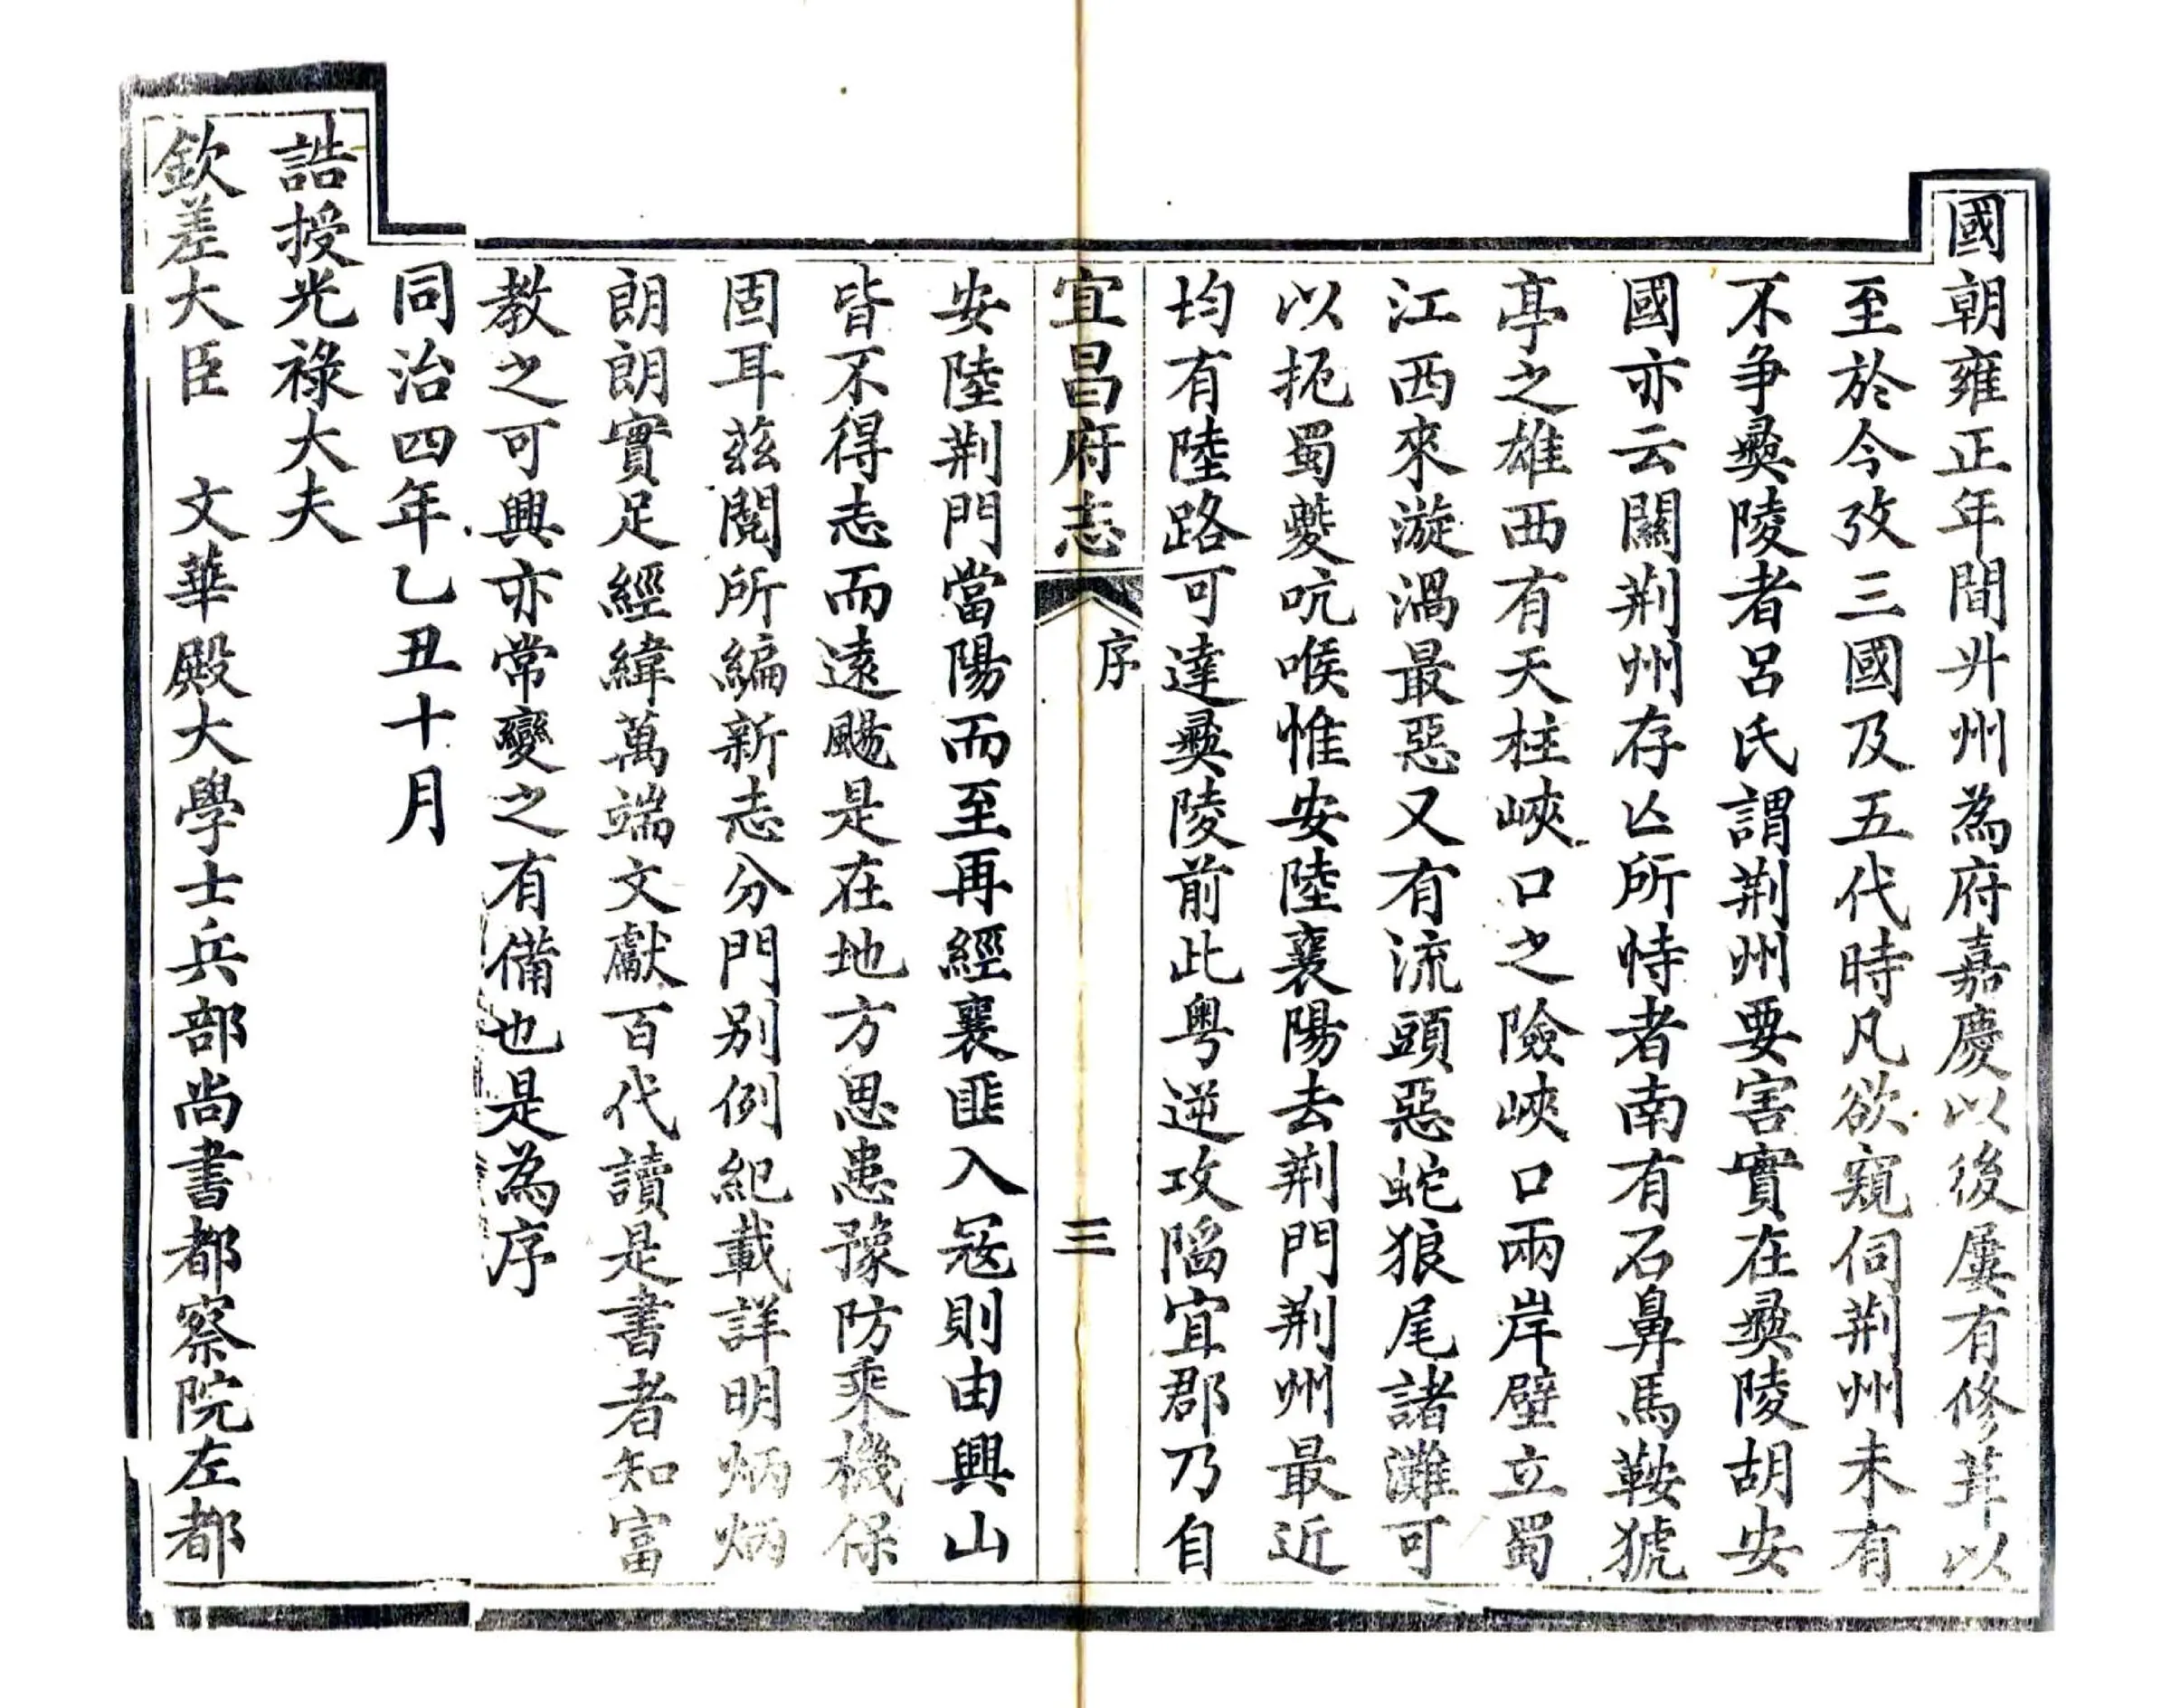 國朝雍正年間升州為府嘉慶以後屢有修葺以
至於今攷三國及五代時凡欲窺伺荆州未有
不爭彝陵者呂氏謂荆州要害實在彝陵胡安
國亦云關荆州存亾所恃者南有石鼻馬鞍猇
亭之雄西有天柱峽口之險峽口兩岸壁立蜀
江西來漩渦最惡又有流頭惡蛇狼尾諸灘可
以扼蜀夔吭喉惟安陸襄陽去荆門荆州最近
均有陸路可達彝陵前此粤逆攻陷宜郡乃自
宜昌府志 序 三
安陸荆門當陽而至再經襄匪入寇則由興山
皆不得志而遠颺是在地方思患豫防乘機保
固耳茲閱所編新志分門别例紀載詳明炳炳
朗朗實足經緯萬端文獻百代讀是書者知富
教之可興亦常變之有備也是為序
同治四年乙丑十月
誥授光祿大夫
欽差大臣 文華殿大學士兵部尚書都察院左都